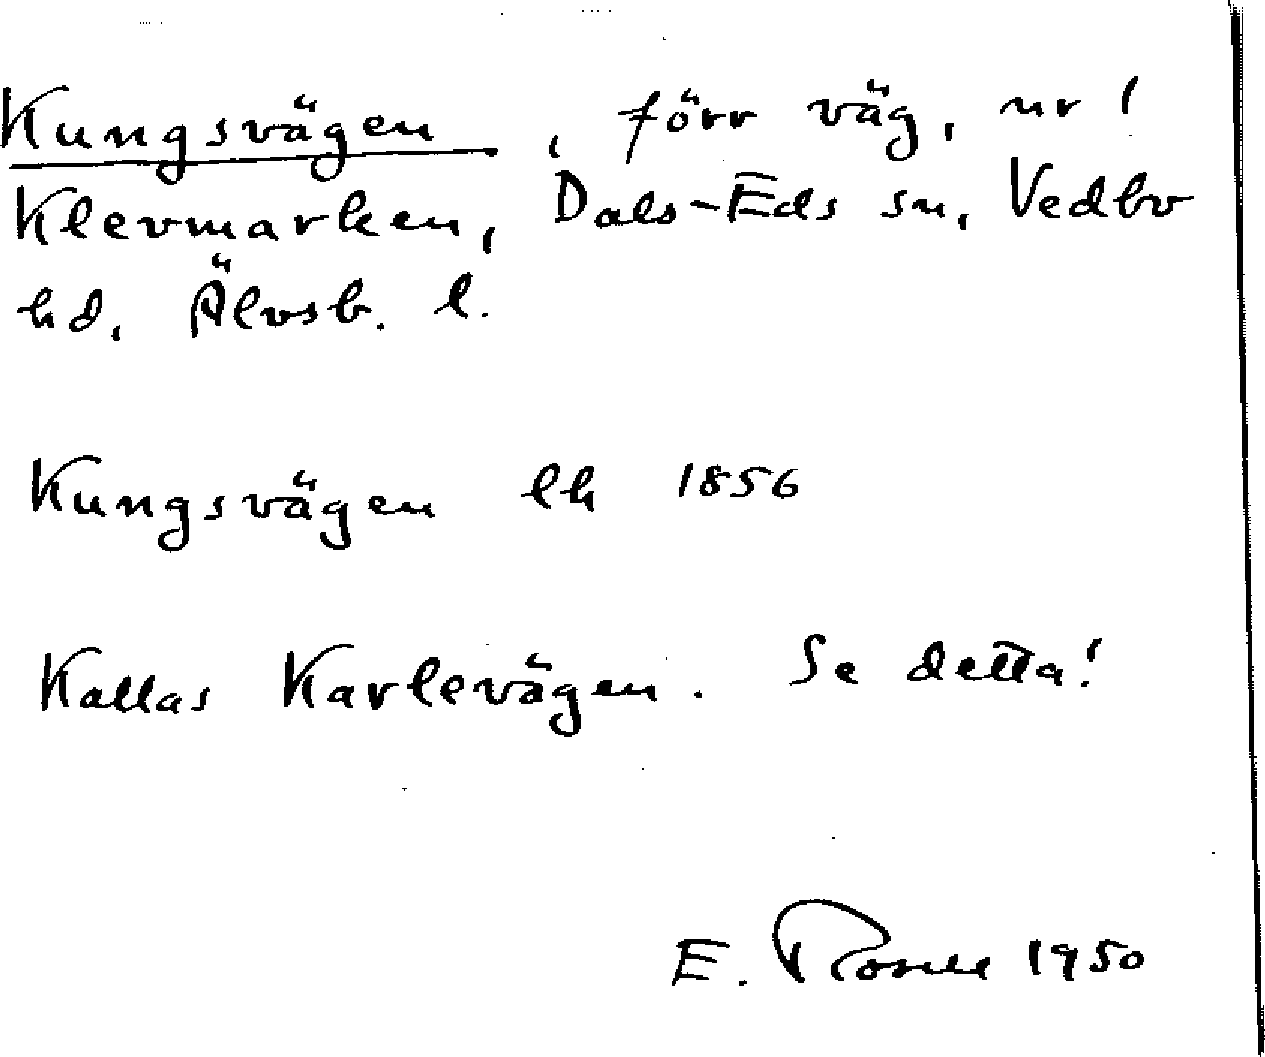 Kungsvägen, förr väg, nr 1
Klevmarken, Dals-Eds sn, Vedbo
hd, Älvsb. l.
Kungsvägen lh 1856
Kallas Karlevägen. Se detta!
E. Rosell 1950